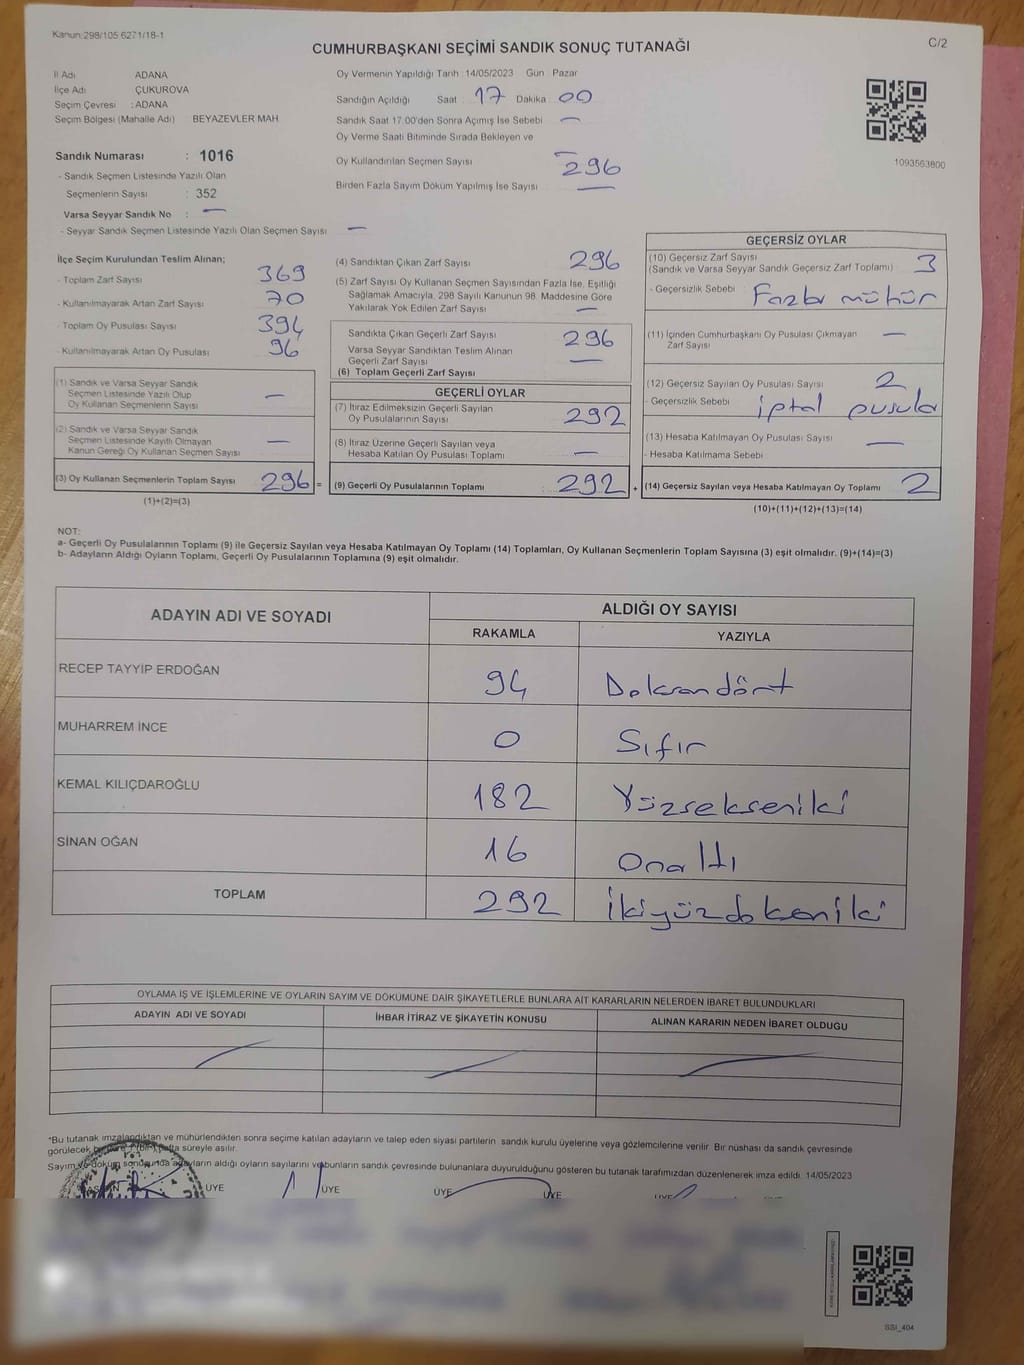 Kanun:298/105 6271/18-1
CUMHURBAŞKANI SEÇİMİ SANDIK SONUÇ TUTANAĞI
C/2
İl Adı ADANA
İlçe Adı ÇUKUROVA
Seçim Çevresi : ADANA
Seçim Bölgesi (Mahalle Adı) BEYAZEVLER MAH.
Sandık Numarası : 1016
- Sandık Seçmen Listesinde Yazılı Olan
Seçmenlerin Sayısı : 352
Varsa Seyyar Sandık No : —
- Seyyar Sandık Seçmen Listesinde Yazılı Olan Seçmen Sayısı —
Oy Vermenin Yapıldığı Tarih :14/05/2023 Gün Pazar
Sandığın Açıldığı Saat : 17 Dakika 00
Sandık Saat 17:00'den Sonra Açımış İse Sebebi —
Oy Verme Saati Bitiminde Sırada Bekleyen ve
Oy Kullandırılan Seçmen Sayısı 296
Birden Fazla Sayım Döküm Yapılmış İse Sayısı —
1093563800
İlçe Seçim Kurulundan Teslim Alınan;
- Toplam Zarf Sayısı 369
- Kullanılmayarak Artan Zarf Sayısı 70
- Toplam Oy Pusulası Sayısı 394
- Kullanılmayarak Artan Oy Pusulası 96
(1) Sandık ve Varsa Seyyar Sandık
Seçmen Listesinde Yazılı Olup
Oy Kullanan Seçmenlerin Sayısı —
(2) Sandık ve Varsa Seyyar Sandık
Seçmen Listesinde Kayıtlı Olmayan
Kanun Gereği Oy Kullanan Seçmen Sayısı —
(3) Oy Kullanan Seçmenlerin Toplam Sayısı 296 =
(1)+(2)=(3)
(4) Sandıktan Çıkan Zarf Sayısı 296
(5) Zarf Sayısı Oy Kullanan Seçmen Sayısından Fazla İse, Eşitliği
Sağlamak Amacıyla, 298 Sayılı Kanunun 98. Maddesine Göre
Yakılarak Yok Edilen Zarf Sayısı —
Sandıkta Çıkan Geçerli Zarf Sayısı 296
Varsa Seyyar Sandıktan Teslim Alınan
Geçerli Zarf Sayısı —
(6) Toplam Geçerli Zarf Sayısı
GEÇERLİ OYLAR
(7) İtiraz Edilmeksizin Geçerli Sayılan
Oy Pusulalarının Sayısı 292
(8) İtiraz Üzerine Geçerli Sayılan veya
Hesaba Katılan Oy Pusulası Toplamı —
(9) Geçerli Oy Pusulalarının Toplamı 292 +
GEÇERSİZ OYLAR
(10) Geçersiz Zarf Sayısı 3
(Sandık ve Varsa Seyyar Sandık Geçersiz Zarf Toplamı)
- Geçersizlik Sebebi Fazla mühür
(11) İçinden Cumhurbaşkanı Oy Pusulası Çıkmayan
Zarf Sayısı —
(12) Geçersiz Sayılan Oy Pusulası Sayısı 2
- Geçersizlik Sebebi iptal pusula
(13) Hesaba Katılmayan Oy Pusulası Sayısı —
- Hesaba Katılmama Sebebi
(14) Geçersiz Sayılan veya Hesaba Katılmayan Oy Toplamı 2
(10)+(11)+(12)+(13)=(14)
NOT:
a- Geçerli Oy Pusulalarının Toplamı (9) ile Geçersiz Sayılan veya Hesaba Katılmayan Oy Toplamı (14) Toplamları, Oy Kullanan Seçmenlerin Toplam Sayısına (3) eşit olmalıdır. (9)+(14)=(3)
b- Adayların Aldığı Oyların Toplamı, Geçerli Oy Pusulalarının Toplamına (9) eşit olmalıdır.
ADAYIN ADI VE SOYADI ALDIĞI OY SAYISI
RAKAMLA YAZIYLA
RECEP TAYYİP ERDOĞAN 94 Doksandört
MUHARREM İNCE 0 Sıfır
KEMAL KILIÇDAROĞLU 182 Yüzsekseniki
SİNAN OĞAN 16 Onaltı
TOPLAM 292 İkiyüzdokseniki
OYLAMA İŞ VE İŞLEMLERİNE VE OYLARIN SAYIM VE DÖKÜMÜNE DAİR ŞİKAYETLERLE BUNLARA AİT KARARLARIN NELERDEN İBARET BULUNDUKLARI
ADAYIN ADI VE SOYADI İHBAR İTİRAZ VE ŞİKAYETİN KONUSU ALINAN KARARIN NEDEN İBARET OLDUĞU
*Bu tutanak imzalandıktan ve mühürlendikten sonra seçime katılan adayların ve talep eden siyasi partilerin sandık kurulu üyelerine veya gözlemcilerine verilir. Bir nüshası da sandık çevresinde
görülecek bir yere 1 (bir) hafta süreyle asılır.
Sayım ve döküm sonucunda adayların aldığı oyların sayılarını ve bunların sandık çevresinde bulunanlara duyurulduğunu gösteren bu tutanak tarafımızdan düzenlenerek imza edildi. 14/05/2023
BAŞKAN ÜYE ÜYE ÜYE ÜYE ÜYE ÜYE
SSI_404